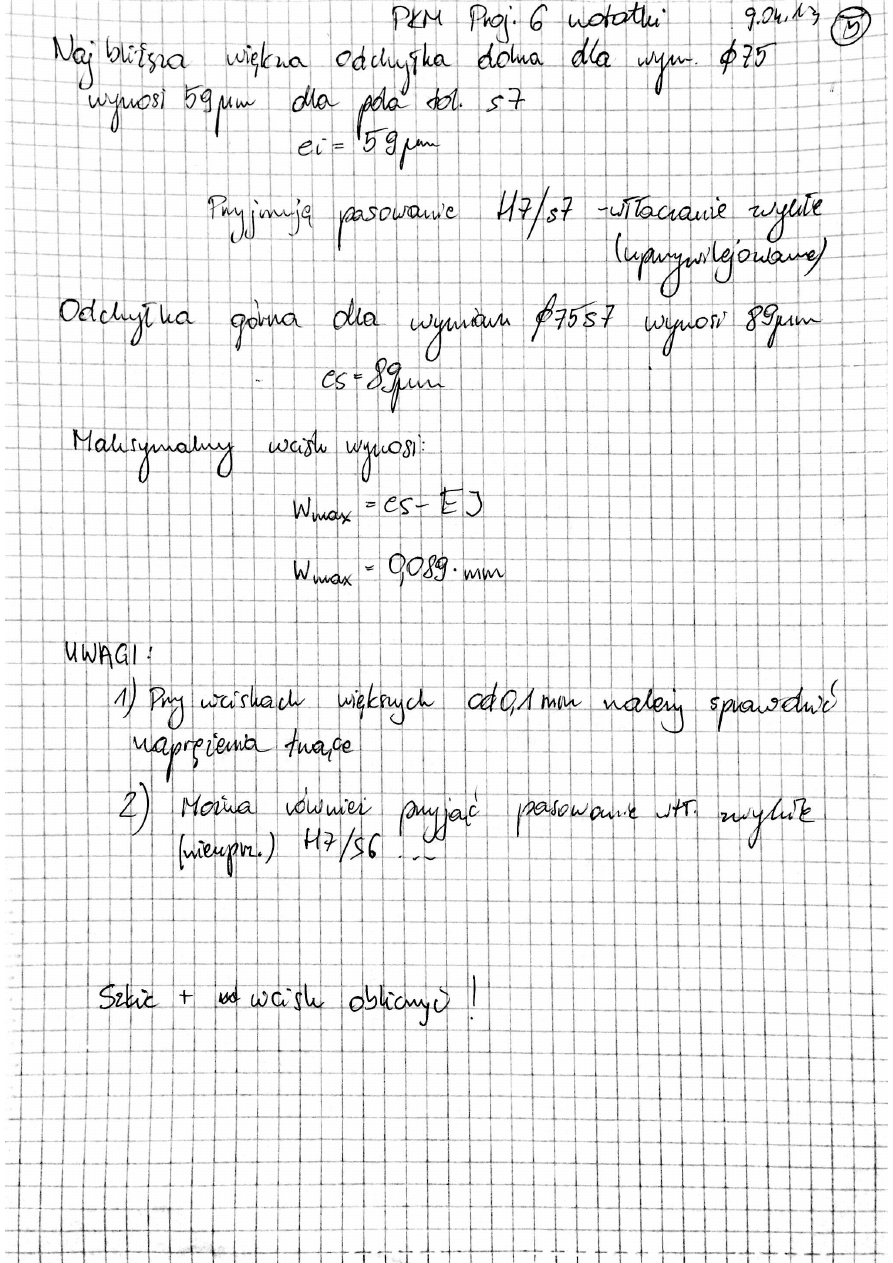 PKM Proj. 6 notatki 9.04.13 15
Najbliższa większa odchyłka dolna dla wym. ϕ75
wynosi 59μm dla pola tol. s7
ei = 59μm
Przyjmuję pasowanie H7/s7 - wtłaczanie zwykłe
(uprzywilejowane)
Odchyłka górna dla wymiaru ϕ75s7 wynosi 89μm
es = 89μm
Maksymalny wcisk wynosi:
Wmax = es - EJ
Wmax = 0,089 · mm
UWAGI:
1) Przy wciskach większych od 0,1 mm należy sprawdzić
naprężenia tnące
2) Można również przyjąć pasowanie wtł. zwykłe
(nieuprz.) H7/s6 ...
Szkic + wcisk obliczyć!